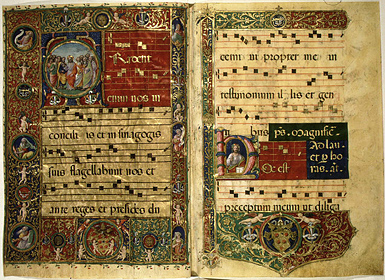 Tradent
enim nos in
conciliis et in sinagogis
suis flagellabunt nos et
ante reges et presides du
cemini propter me in
testimonium illis et gen
tibus ps. Magnific
Ad lau
et p ho
ras. añ.
Hoc est
preceptum meum ut diliga